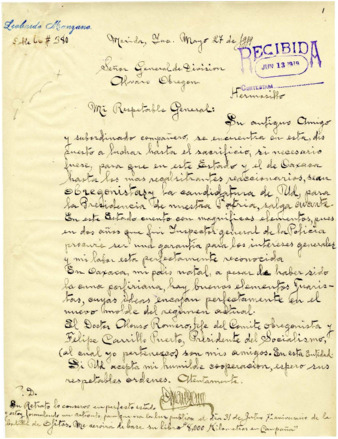 Leobardo Manzano.
Calle 60 # 380
Merida, Yuc. Mayo 27 de 1919
RECIBIDA
JUN 13 1919
CONTESTADA
Señor General de Division
Alvaro Obregon
Hermosillo
Mi Respetable General:
Un antiguo Amigo
y subordinado compañero, se encuentra en esta, dis
puesto a luchar hasta el sacrificio, si necesario
fuese, para que en este Estado y el de Oaxaca
hasta los mas recalcitrantes reaccionarios, sean
Obregonistas y la candidatura de Ud. para
la Presidencia de nuestra Patria, salga avante
En este Estado cuento con magnificos elementos, pues
en dos años que fui Inspector general de la Policia
procuré ser una garantia para los intereses generales
y mi labor esta perfectamente reconocida
En Oaxaca, mi pais natal, a pesar de haber sido
la cuna porfiriana, hay buenos elementos Juaris-
tas, cuyas ideas encajan perfectamente en el
nuevo molde del regimen actual.
El Doctor Alonso Romero, jefe del Comite obregonista y
Felipe Carrillo Puerto, Presidente del Socialismo,
(al cual yo pertenezco) son mis amigos. En esta Entidad
Si Ud. acepta mi humilde cooperacion, espero sus
respetables ordenes. Atentamente.
P.D.
Su Retrato lo conservo en perfecto estado
y estoy formulando un articulo para que vea la luz publica el dia 3 de Junio
de Me servira de base su libro "8,000 Kilometros en Campaña"